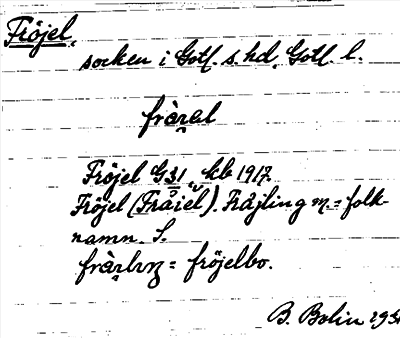 Fröjel,
socken i Gotl. s. hd, Gotl. l.
Fröjel G 31, kb 1917.
Fröjel (Fråiel). Fråjling m. = folk-
namn. S.
= fröjelbo.
B. Bolin